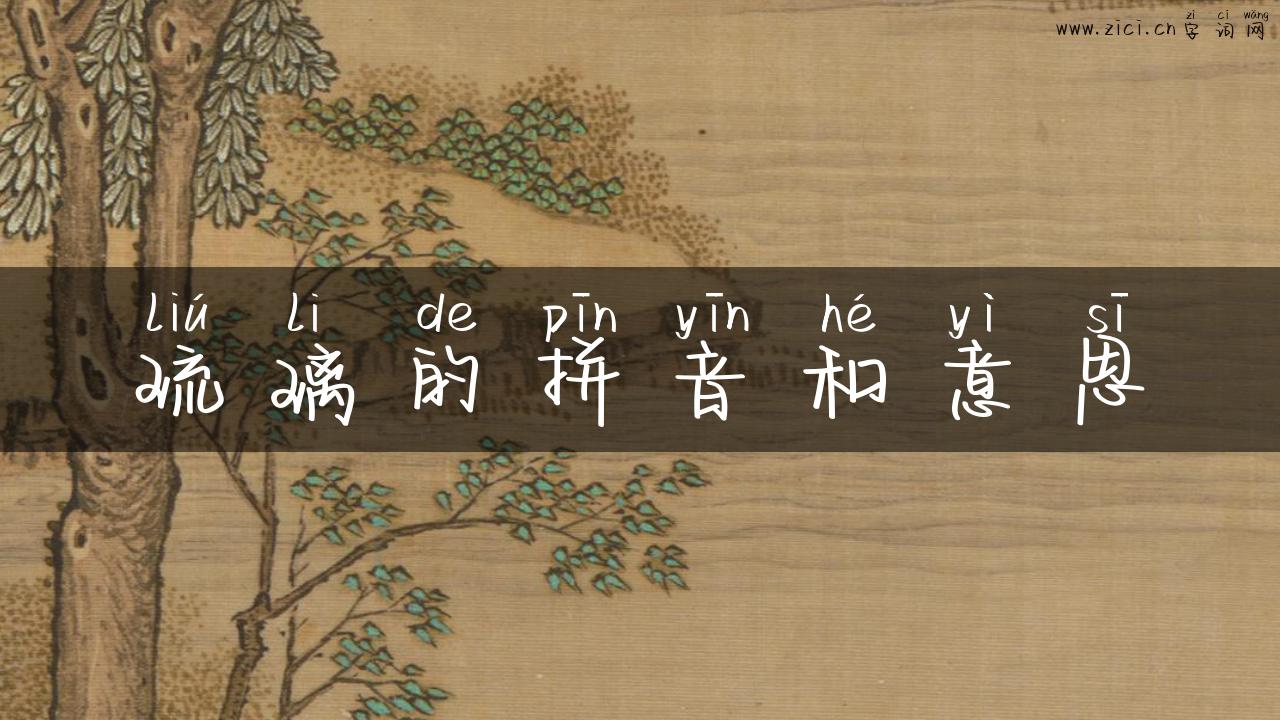 zì cí wǎng
www.zici.cn 字词网
liú li de pīn yīn hé yì sī
琉璃的拼音和意思